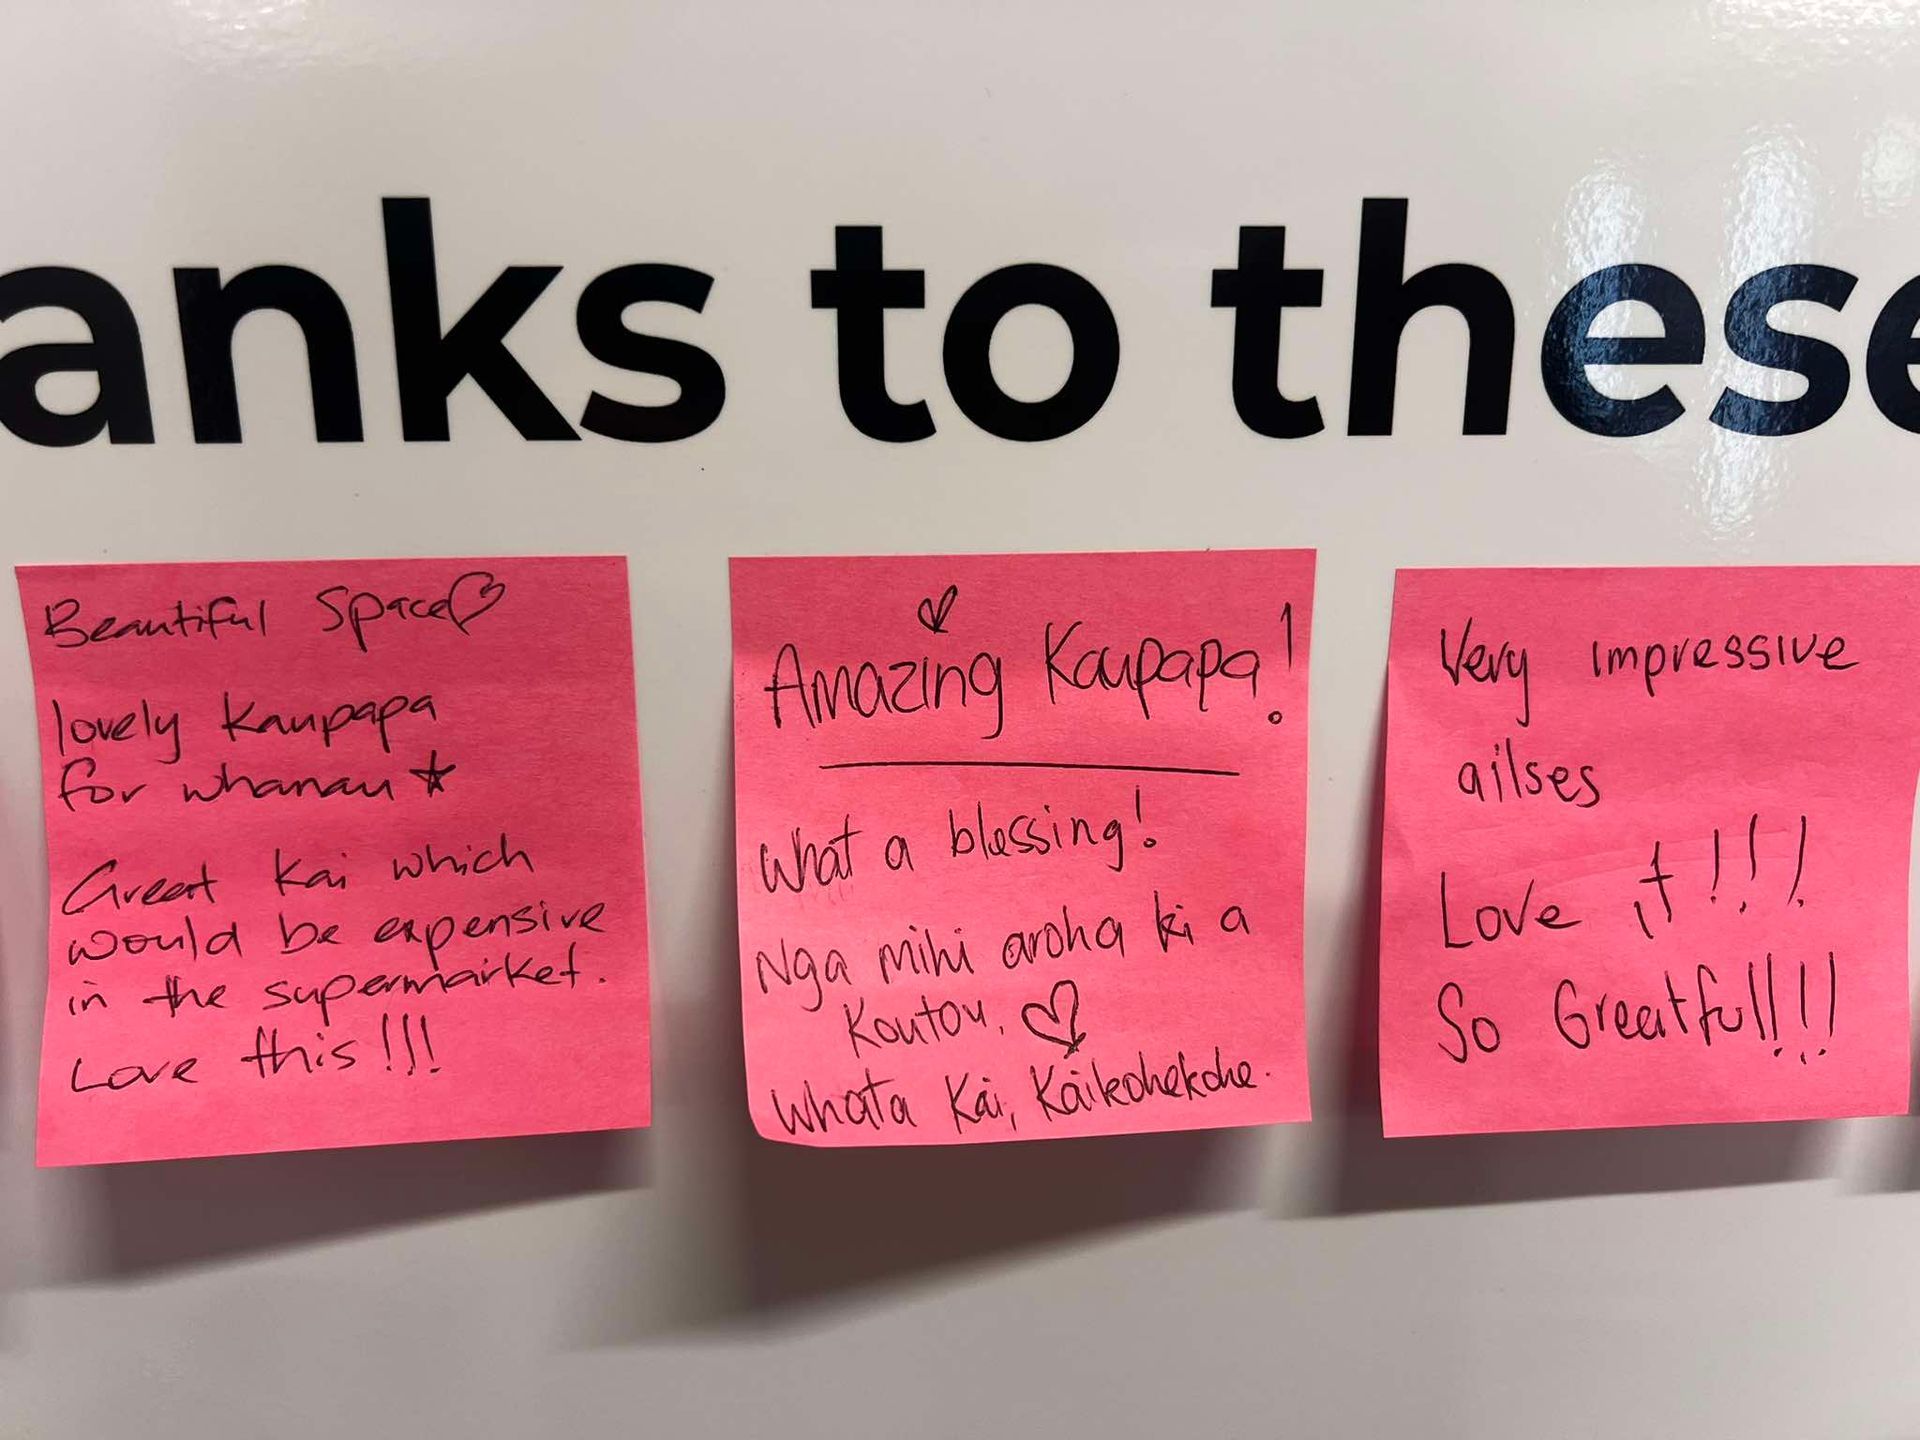 anks to these
Beautiful Space♡
lovely Kaupapa
for whanau ☆
Great Kai which
would be expensive
in the supermarket.
Love this!!!
♡
Amazing Kaupapa!
What a blessing!
Nga mihi aroha ki a
Koutou. ♡
Whata Kai, Kaikohekohe.
Very impressive
ailses
Love it!!!
So Greatful!!!!